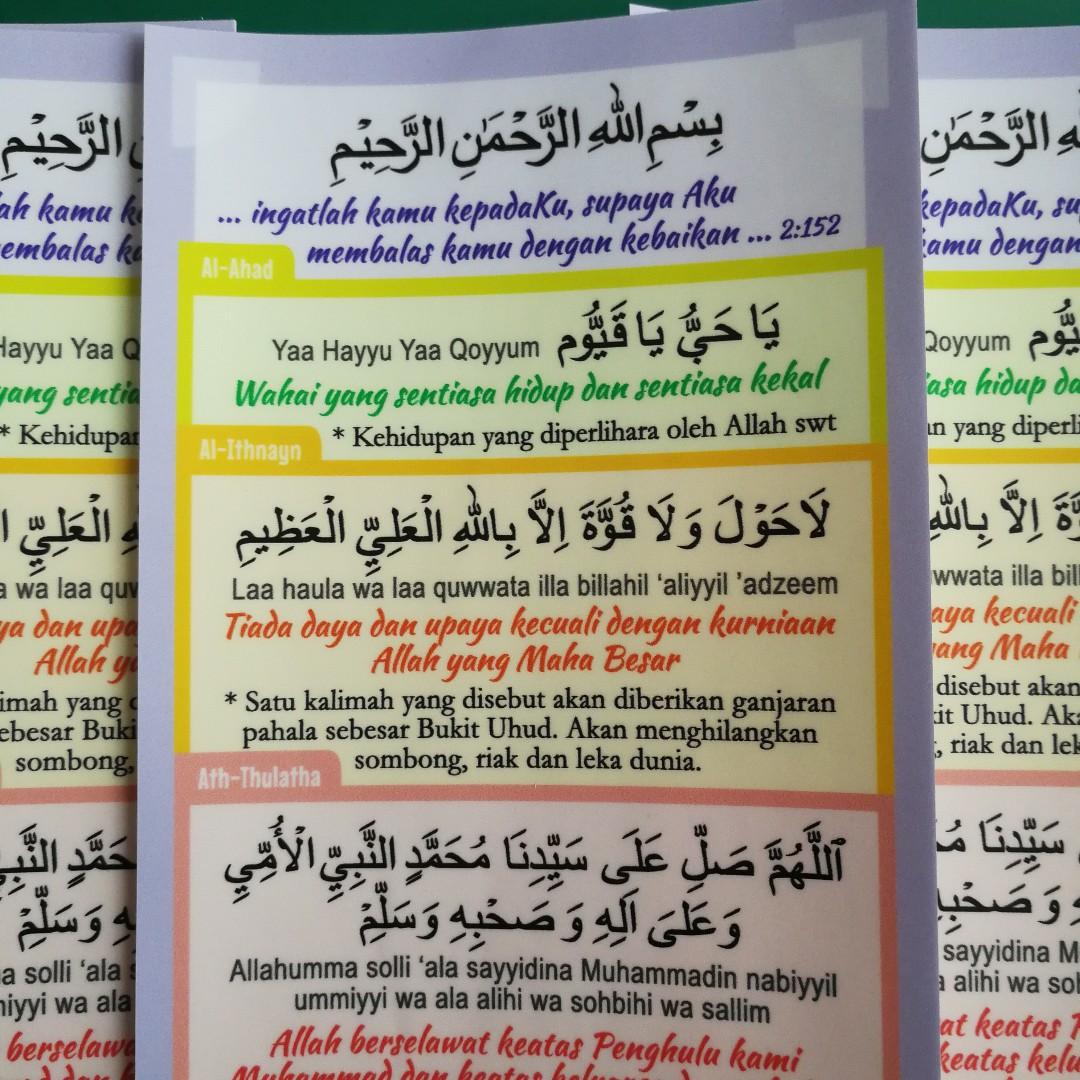 بِسْمِ اللهِ الرَّحْمَٰنِ الرَّحِيْمِ
... ingatlah kamu kepadaKu, supaya Aku
membalas kamu dengan kebaikan ... 2:152
Al-Ahad
Yaa Hayyu Yaa Qoyyum يَا حَيُّ يَا قَيُّوْم
Wahai yang sentiasa hidup dan sentiasa kekal
* Kehidupan yang diperlihara oleh Allah swt
Al-Ithnayn
لَاحَوْلَ وَلَا قُوَّةَ اِلَّا بِاللهِ الْعَلِيِّ الْعَظِيمِ
Laa haula wa laa quwwata illa billahil ‘aliyyil ’adzeem
Tiada daya dan upaya kecuali dengan kurniaan
Allah yang Maha Besar
* Satu kalimah yang disebut akan diberikan ganjaran
pahala sebesar Bukit Uhud. Akan menghilangkan
sombong, riak dan leka dunia.
Ath-Thulatha
اَللَّهُمَّ صَلِّ عَلَى سَيِّدِنَا مُحَمَّدٍ النَّبِيِّ الْأُمِّي
وَعَلَى آلِهِ وَصَحْبِهِ وَسَلِّمْ
Allahumma solli ‘ala sayyidina Muhammadin nabiyyil
ummiyyi wa ala alihi wa sohbihi wa sallim
Allah berselawat keatas Penghulu kami
Muhammad dan keatas